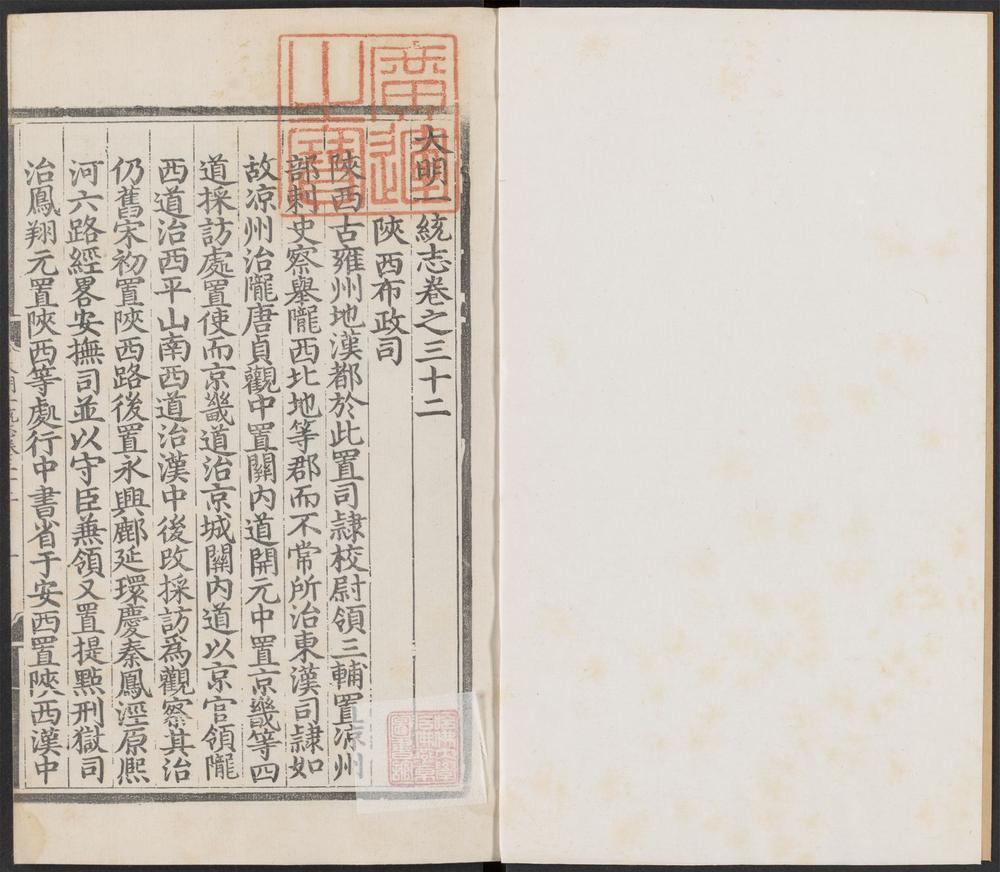 大明一統志卷之三十二
陝西布政司
陝西古雍州地漢都於此置司隷校尉領三輔置涼州
部刺史察舉隴西北地等郡而不常所治東漢司隷如
故凉州治隴唐貞觀中置關内道開元中置京畿等四
道採訪處置使而京畿道治京城關内道以京官領隴
西道治西平山南西道治漢中後改採訪爲觀察其治
仍舊宋初置陝西路後置永興鄜延環慶秦鳳涇原熈
河六路經畧安撫司並以守臣兼領又置提點刑獄司
治鳳翔元置陝西等處行中書省于安西置陝西漢中
廣運之寶